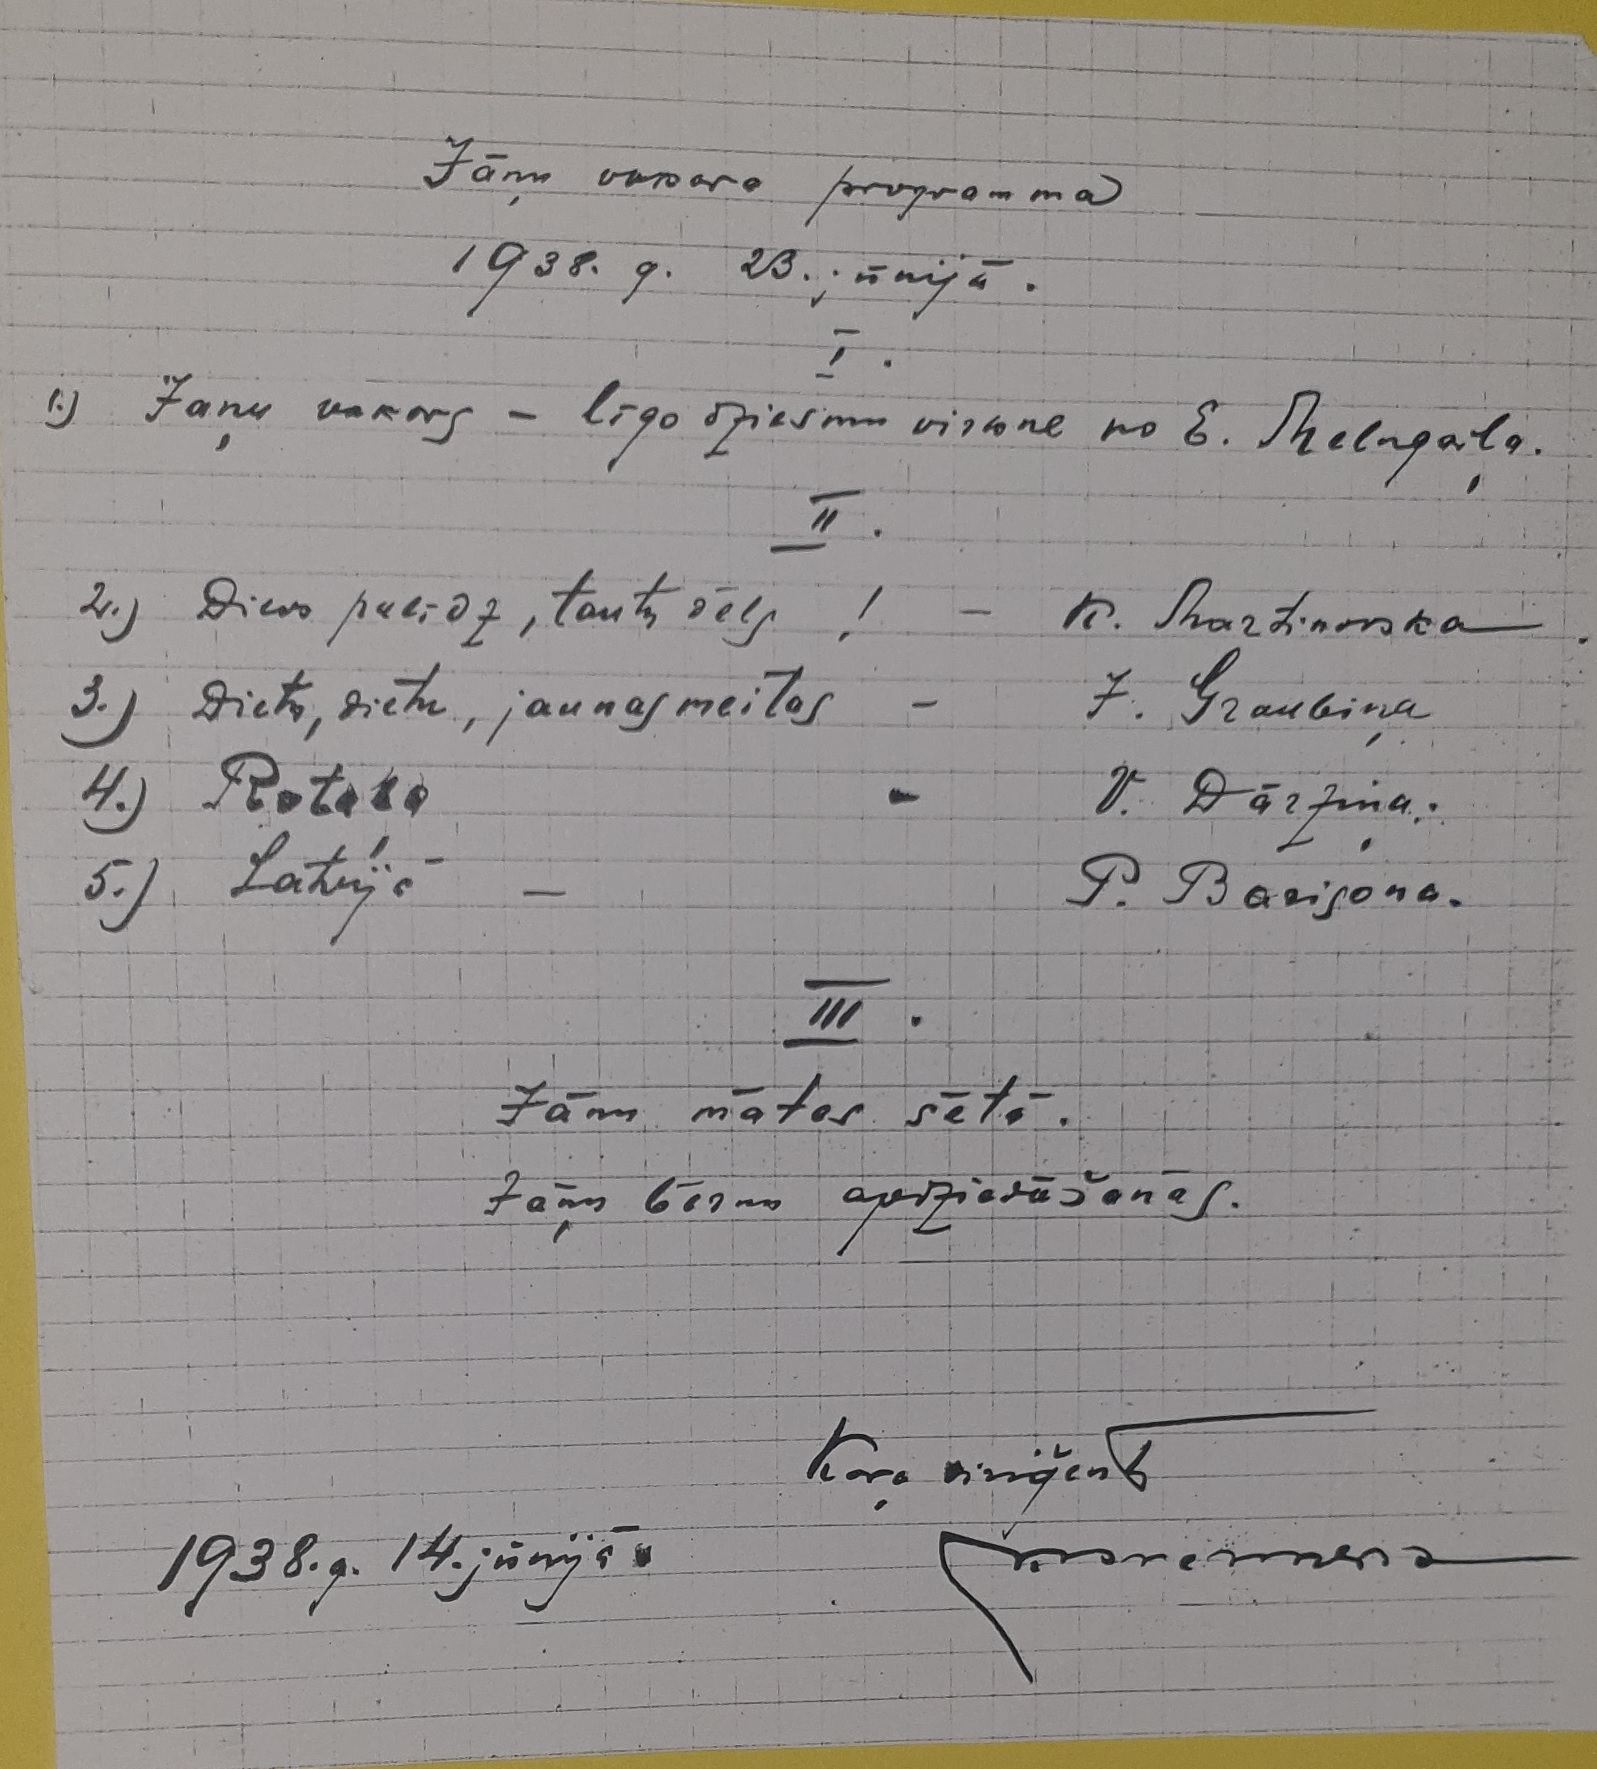 Jāņu vakara programma
1938. g. 23. jūnijā.
I.
1.) Jāņu vakars – līgo dziesmu virkne no E. Melngaiļa.
II.
2.) Dievs palīdz, tautu dēls! – K. Martinovska.
3.) Dietu, dietu, jaunas meitas – J. Graubiņa
4.) Rotaļa - V. Dārziņa.
5.) Latvijā – P. Barisona.
III.
Jāņu mātes sētā.
Jāņu bērnu apdziedāšanās.
Kora diriģents
1938. g. 14. jūnijā.